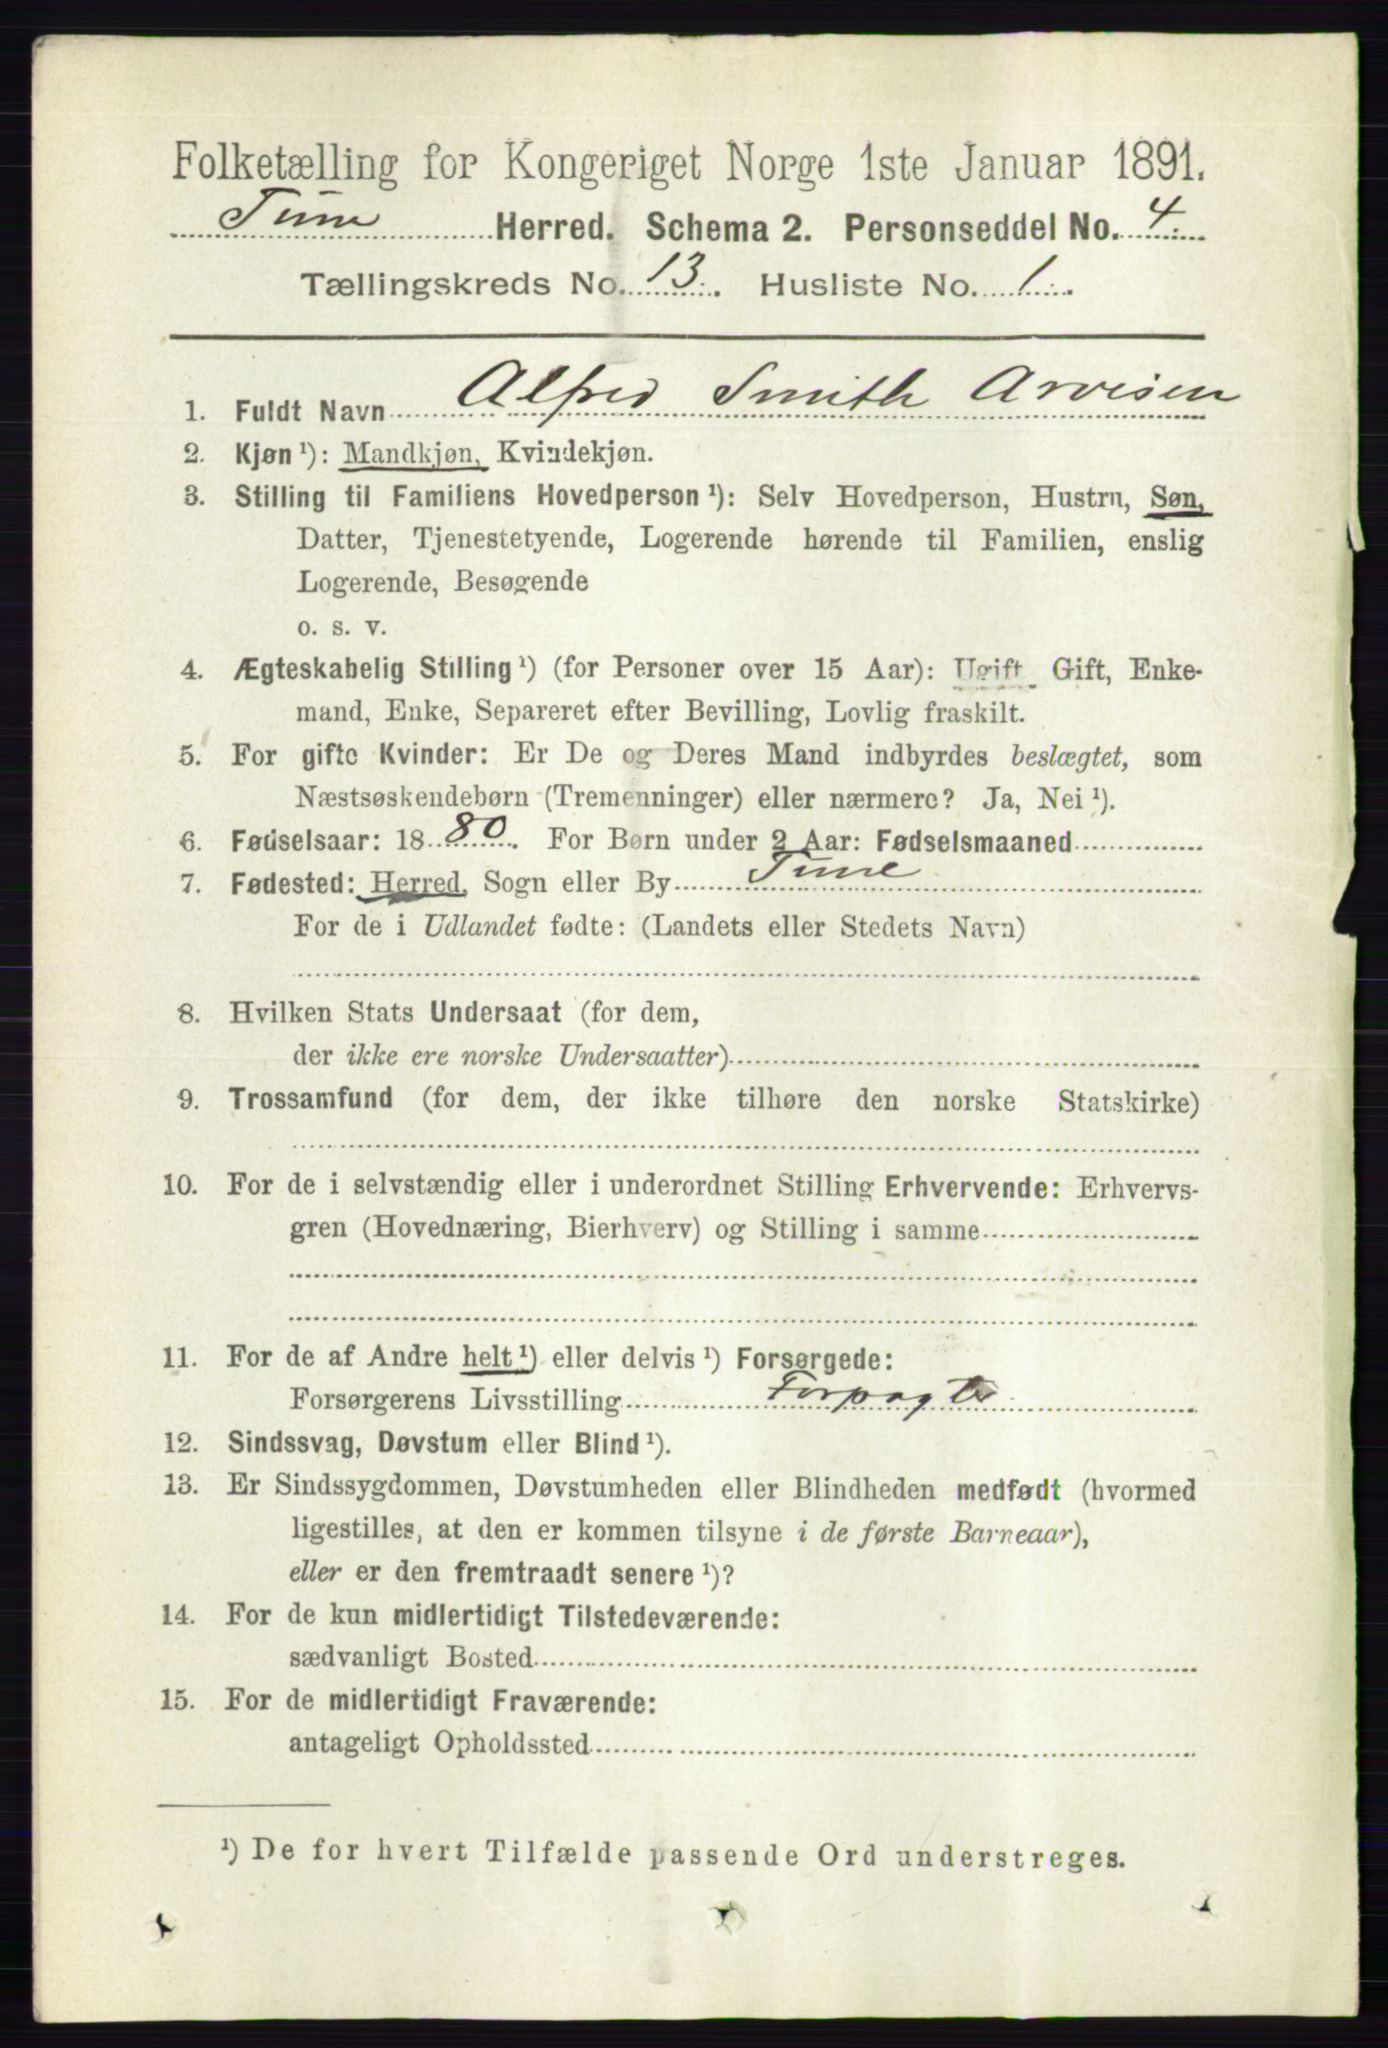 Folketælling for Kongeriget Norge 1ste Januar 1891.
Tune Herred. Schema 2. Personseddel No. 4.
Tællingskreds No. 13. Husliste No. 1.
1. Fuldt Navn Alfred Smith Arvesen
2. Kjøn ¹): Mandkjøn, Kvindekjøn.
3. Stilling til Familiens Hovedperson ¹): Selv Hovedperson, Hustru, Søn,
Datter, Tjenestetyende, Logerende hørende til Familien, enslig
Logerende, Besøgende
o. s. v.
4. Ægteskabelig Stilling ¹) (for Personer over 15 Aar): Ugift, Gift, Enke-
mand, Enke, Separeret efter Bevilling, Lovlig fraskilt.
5. For gifte Kvinder: Er De og Deres Mand indbyrdes beslægtet, som
Næstsøskendebørn (Tremenninger) eller nærmere? Ja, Nei ¹).
6. Fødselsaar: 1880. For Børn under 2 Aar: Fødselsmaaned
7. Fødested: Herred, Sogn eller By Tune
For de i Udlandet fødte: (Landets eller Stedets Navn)
8. Hvilken Stats Undersaat (for dem,
der ikke ere norske Undersaatter)
9. Trossamfund (for dem, der ikke tilhøre den norske Statskirke)
10. For de i selvstændig eller i underordnet Stilling Erhvervende: Erhvervs-
gren (Hovednæring, Bierhverv) og Stilling i samme
11. For de af Andre helt ¹) eller delvis ¹) Forsørgede:
Forsørgerens Livsstilling Forpagter
12. Sindssvag, Døvstum eller Blind ¹).
13. Er Sindssygdommen, Døvstumheden eller Blindheden medfødt (hvormed
ligestilles, at den er kommen tilsyne i de første Barneaar),
eller er den fremtraadt senere ¹)?
14. For de kun midlertidigt Tilstedeværende:
sædvanligt Bosted
15. For de midlertidigt Fraværende:
antageligt Opholdssted
¹) De for hvert Tilfælde passende Ord understreges.